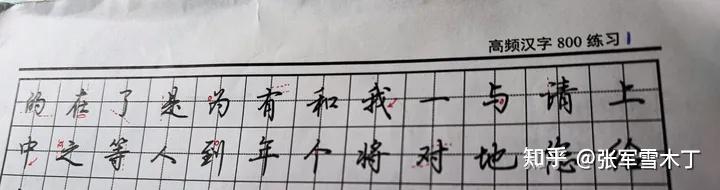 高频汉字 800 练习 1
的在了是为有和我一与请上
中之等人到年个将对地您给
知乎 @张军雪木丁